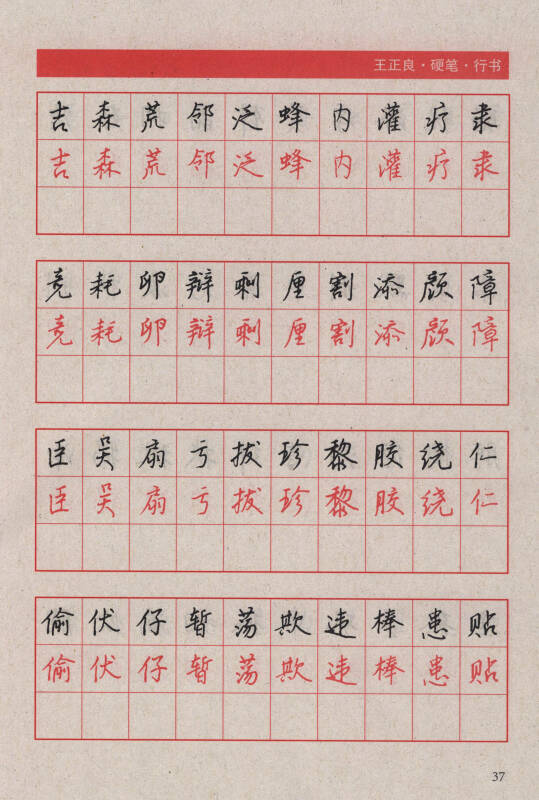 王正良·硬笔·行书
吉森荒邻泛蜂内灌疗隶
吉森荒邻泛蜂内灌疗隶
竞耗卵辩剩厘割添颜障
竞耗卵辩剩厘割添颜障
臣吴扇亏拔珍黎胶绕仁
臣吴扇亏拔珍黎胶绕仁
偷伏仔暂荡欺违棒患贴
偷伏仔暂荡欺违棒患贴
37